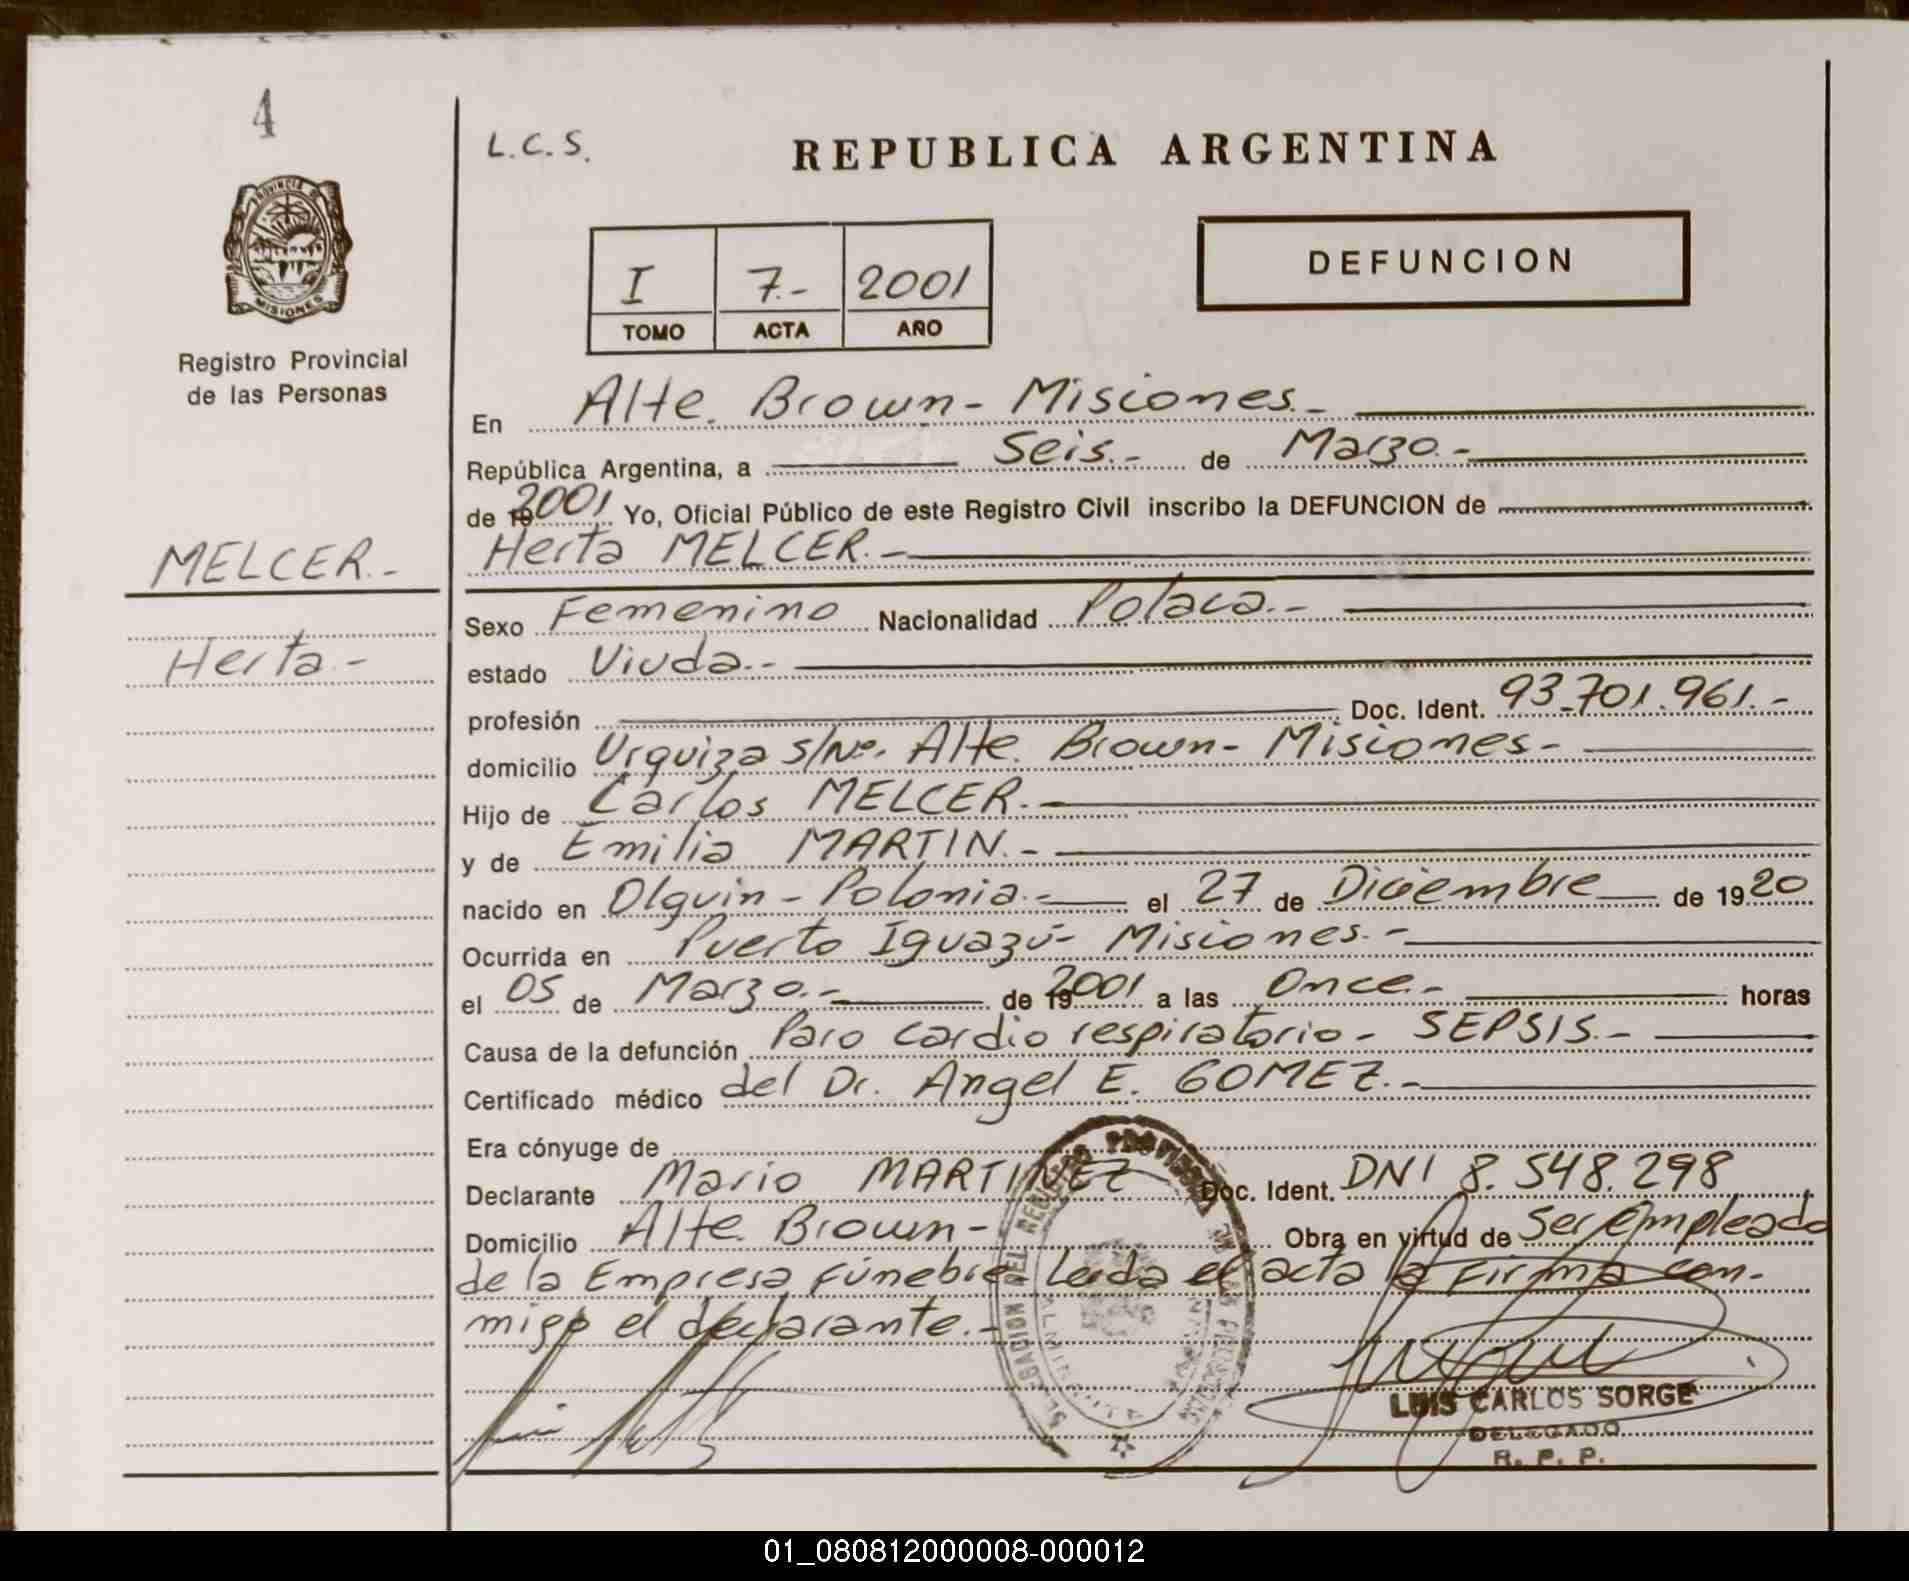 4
L.C.S.
REPUBLICA ARGENTINA
PROVINCIA DE
MISIONES
Registro Provincial
de las Personas
I 7.- 2001
TOMO ACTA AÑO
DEFUNCION
En Alte. Brown - Misiones.-
República Argentina, a Seis.- de Marzo.-
de 19 2001 Yo, Oficial Público de este Registro Civil inscribo la DEFUNCION de
MELCER.- Herta MELCER.-
Herta.-
Sexo Femenino Nacionalidad Polaca.-
estado Viuda.-
profesión Doc. Ident. 93.701.961.-
domicilio Urquiza S/Nº. Alte. Brown - Misiones -
Hijo de Carlos MELCER.-
y de Emilia MARTIN.-
nacido en Olguin - Polonia.- el 27 de Diciembre de 1920
Ocurrida en Puerto Iguazú - Misiones.-
el 05 de Marzo.- de 19 2001 a las Once.- horas
Causa de la defunción Paro cardio respiratorio - SEPSIS.-
Certificado médico del Dr. Angel E. GOMEZ.-
Era cónyuge de
Declarante Mario MARTINEZ Doc. Ident. DNI 8.548.298
Domicilio Alte. Brown - Obra en virtud de Ser empleado
de la Empresa Fúnebre - Leida el acta la Firma con-
migo el declarante.-
LUIS CARLOS SORGE
DELEGADO
R. P. P.
01_080812000008-000012